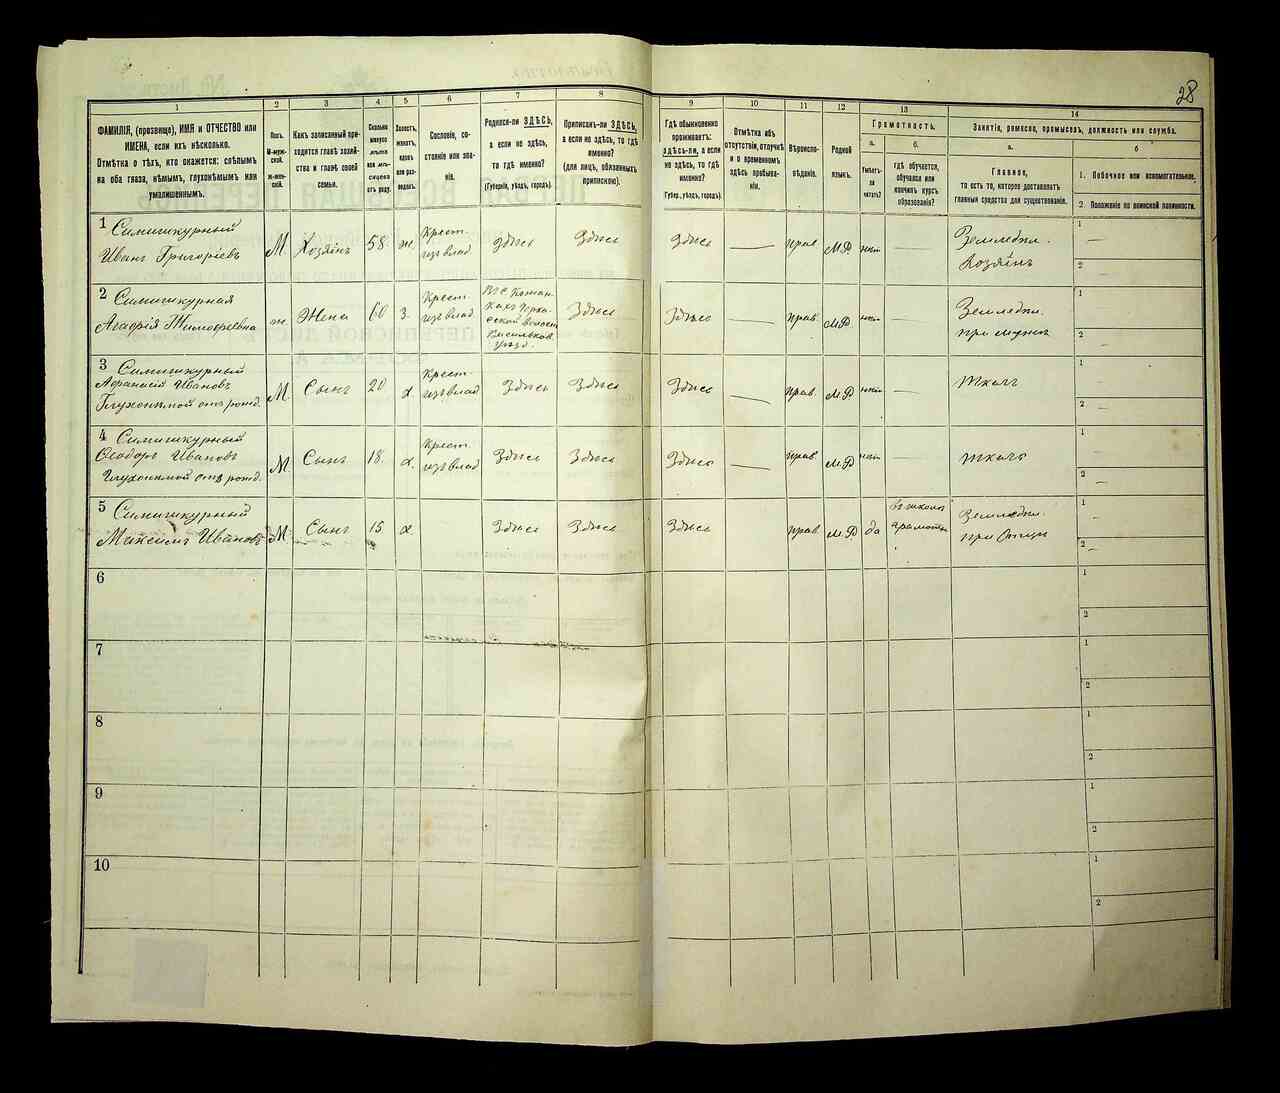 28
1
2
3
4
5
6
7
8
9
10
11
12
13
14
ФАМИЛІЯ, (прозвище), ИМЯ и ОТЧЕСТВО или
ИМЕНА, если ихъ нѣсколько.
Отмѣтка о тѣхъ, кто окажется: слѣпымъ
на оба глаза, нѣмымъ, глухонѣмымъ или
умалишеннымъ.
Полъ.
М-муж-
ской.
ж-жен-
скій.
Какъ записанный при-
ходится главѣ хозяй-
ства и главѣ своей
семьи.
Сколько
минуло
лѣтъ
или мѣ-
сяцевъ
отъ роду.
Холостъ,
женатъ,
вдовъ
или раз-
веденъ.
Сословіе, со-
стояніе или зва-
ніе.
Родился-ли ЗДѢСЬ,
а если не здѣсь,
то гдѣ именно?
(Губернія, уѣздъ, городъ).
Приписанъ-ли ЗДѢСЬ,
а если не здѣсь, то гдѣ
именно?
(для лицъ, обязанныхъ
припискою).
Гдѣ обыкновенно
проживаетъ:
здѣсь-ли, а если
не здѣсь, то гдѣ
именно?
(Губер., уѣздъ, городъ).
Отмѣтка объ
отсутствіи, отлучкѣ
и о временномъ
здѣсь пребыва-
ніи.
Вѣроиспо-
вѣданіе.
Родной
языкъ.
Грамотность.
а.
Умѣетъ-
ли
читать?
б.
гдѣ обучается,
обучался или
кончилъ курсъ
образованія?
Занятіе, ремесло, промыселъ, должность или служба.
а.
Главное,
то есть то, которое доставляетъ
главныя средства для существованія.
б
1. Побочное или вспомогательное.
2. Положеніе по воинской повинности.
1 Симишкурный
Иванъ Григоріевъ
М. Хозяинъ 58 ж.
Крест.
изъ влад.
Здѣсь Здѣсь Здѣсь — прав. М.Р. нѣтъ —
Земледѣл.
Хозяинъ
1 —
2 —
2 Симишкурная
Агафія Тимофеевна
ж. Жена 60 З.
Крест.
изъ влад.
Васильков.
уѣзд.
Здѣсь Здѣсь — прав. М.Р. нѣтъ —
Земледѣл.
при мужѣ
1
2 —
3 Симишкурный
Афанасій Ивановъ
Глухонѣмой отъ рожд.
М. Сынъ 20 х.
Крест.
изъ влад.
Здѣсь Здѣсь Здѣсь — прав. М.Р. нѣтъ —
1
2 —
4 Симишкурный
Ѳеодоръ Ивановъ
Глухонѣмой отъ рожд.
М Сынъ 18. х.
Крест.
изъ влад.
Здѣсь Здѣсь Здѣсь — прав. М.Р. нѣтъ —
1
2 —
5 Симишкурный
Максимъ Ивановъ
М. Сынъ 15 х.
Здѣсь Здѣсь Здѣсь прав. М.Р. да
Земледѣл.
при отцѣ
1
2 —
6
1
2
7
1
2
8
1
2
9
1
2
10
1
2